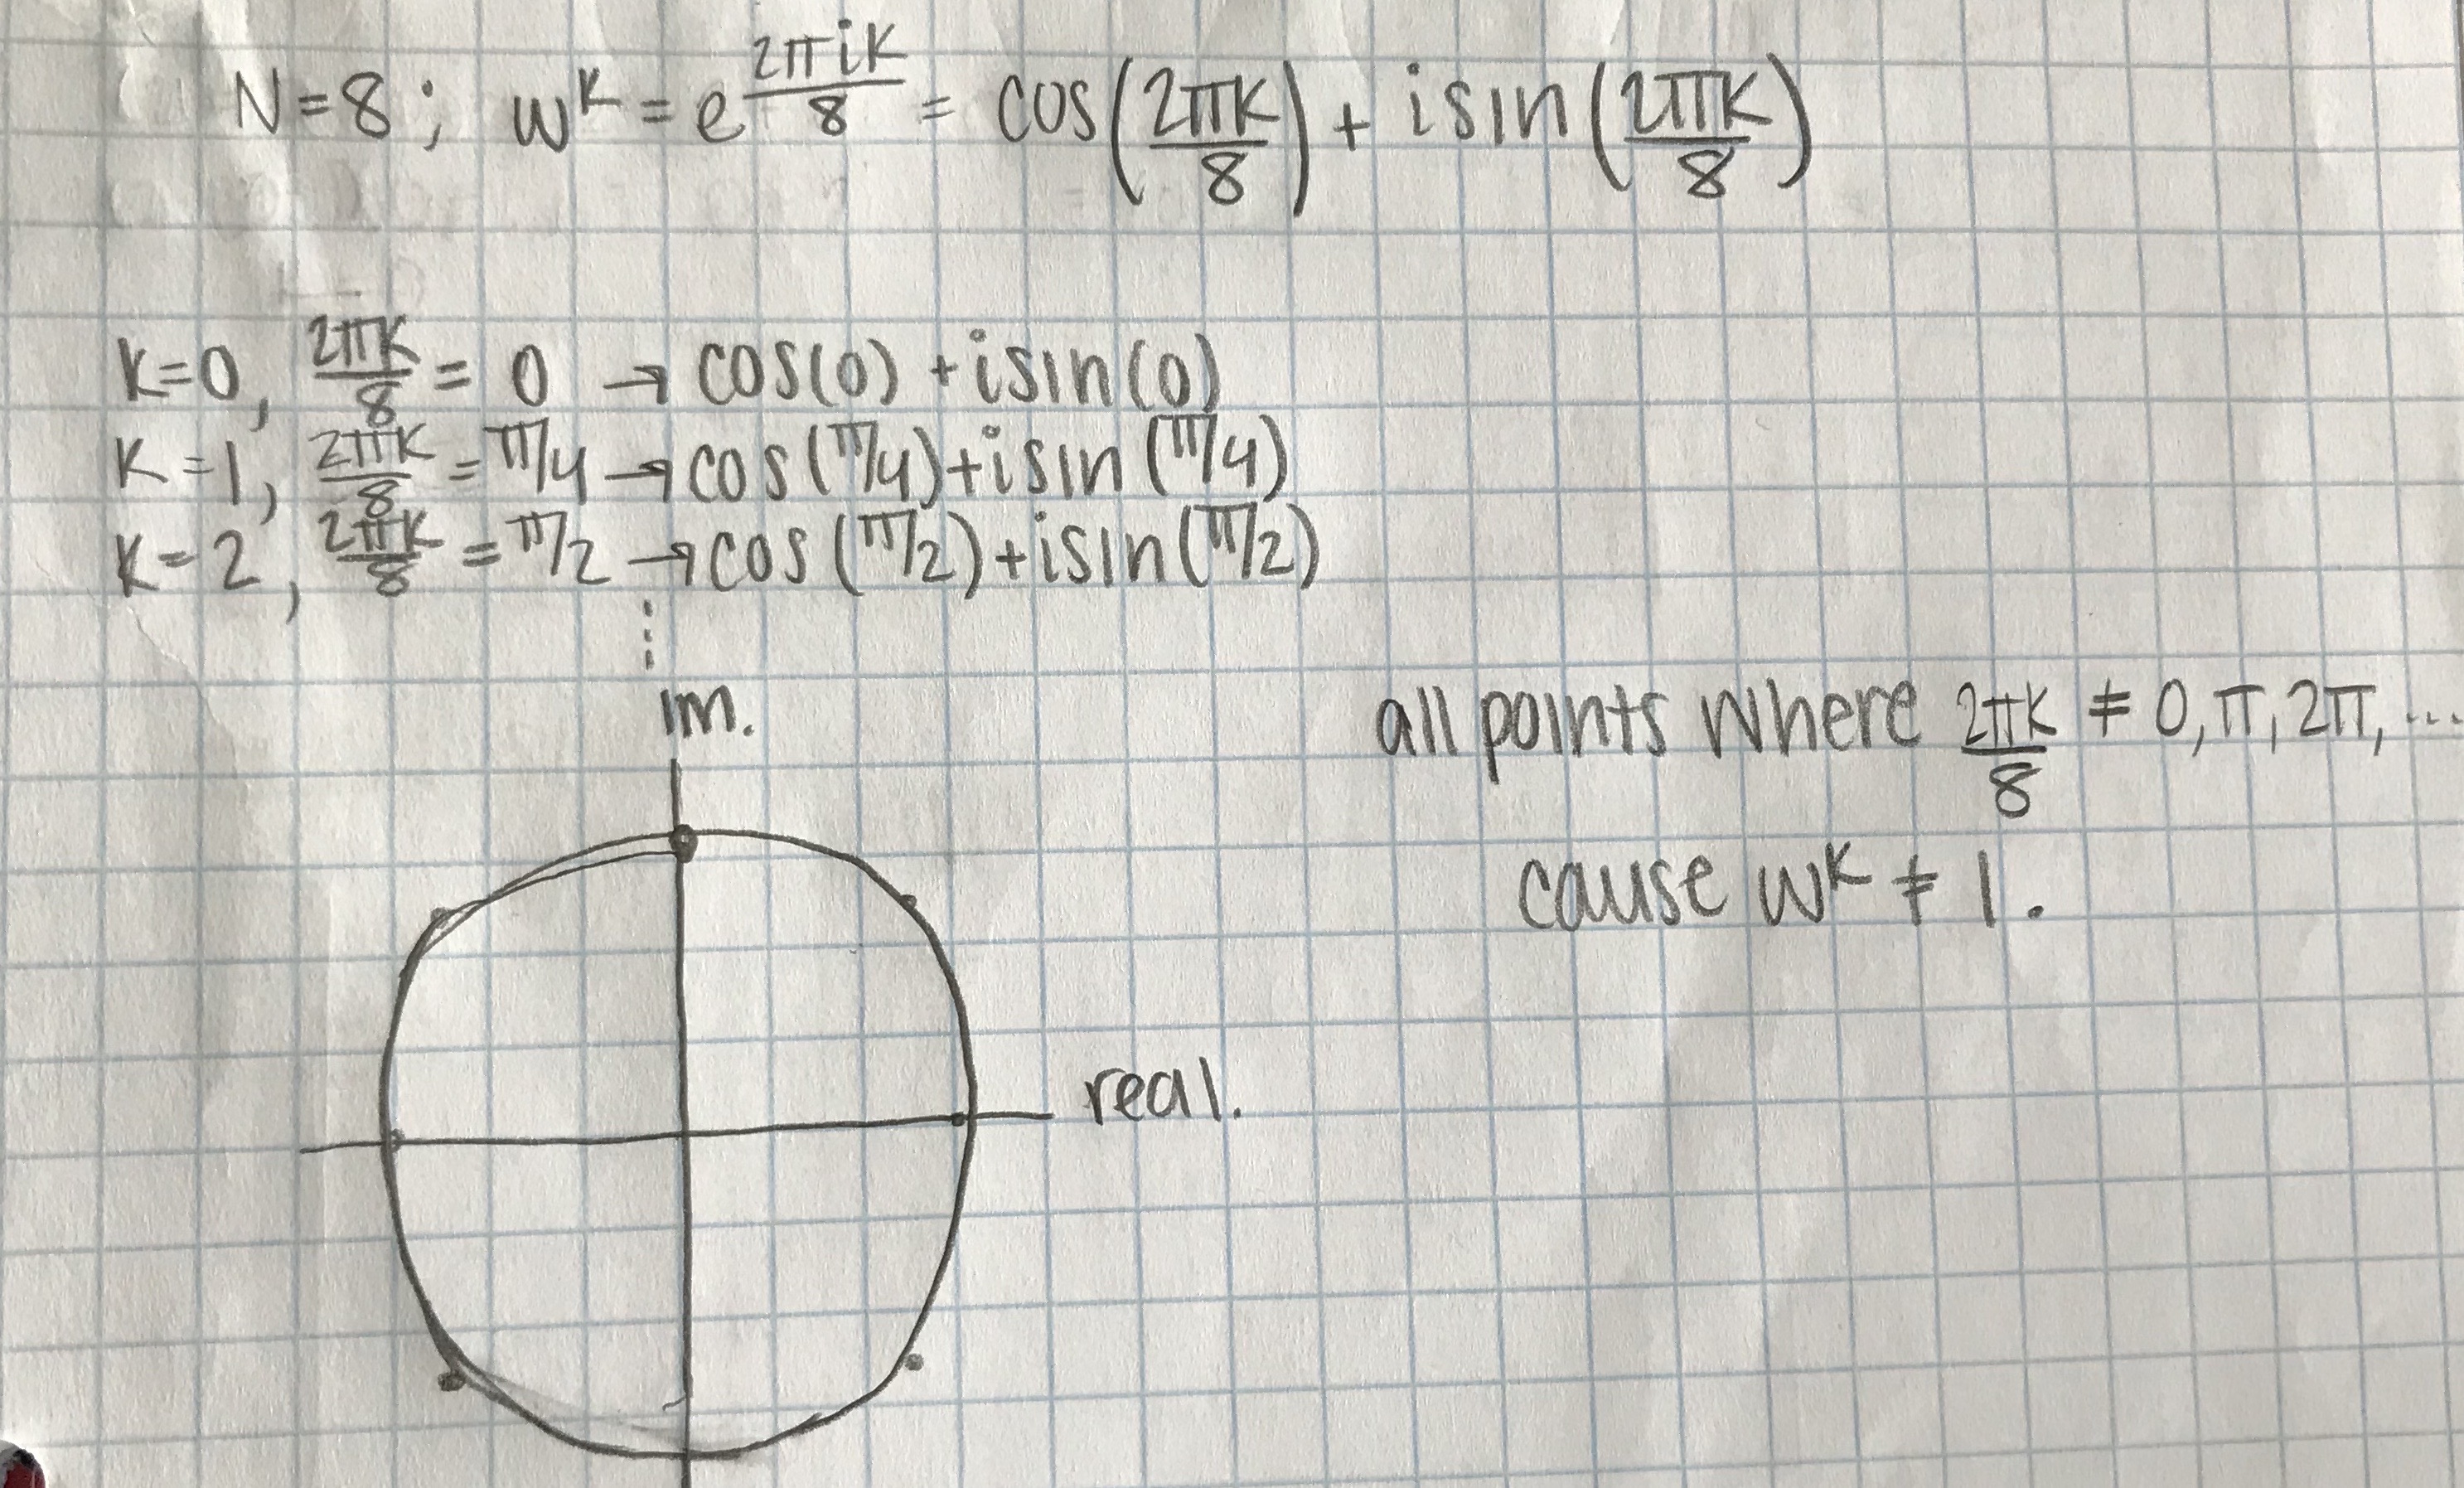 N=8; w^K = e^(2πiK/8) = cos(2πK/8) + isin(2πK/8)
K=0, 2πK/8 = 0 → cos(0) + isin(0)
K=1, 2πK/8 = π/4 → cos(π/4)+isin(π/4)
K=2, 2πK/8 = π/2 → cos(π/2)+isin(π/2)
⋮
im.
all points where 2πK/8 ≠ 0, π, 2π, ...
cause w^K ≠ 1.
real.